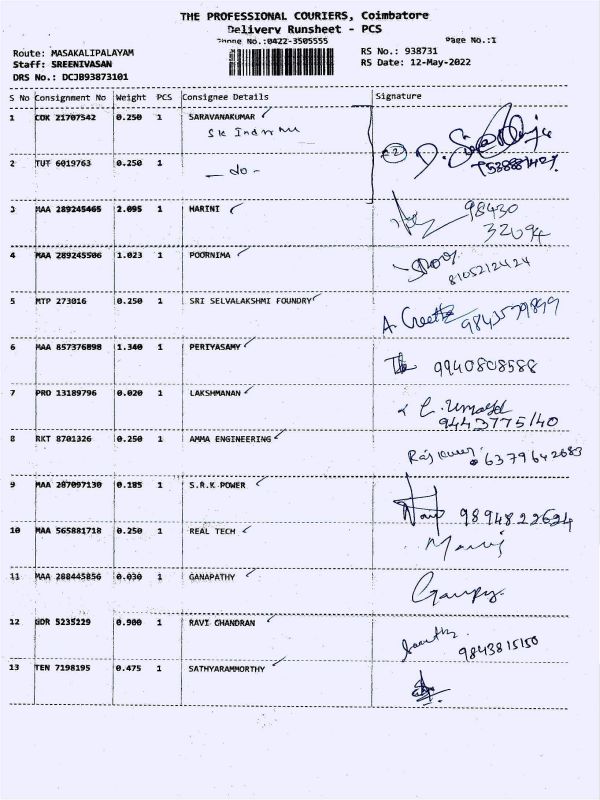 THE PROFESSIONAL COURIERS, Coimbatore
Delivery Runsheet - PCS
Phone No.:0422-3505555
Page No.:1
Route: MASAKALIPALAYAM
RS No.: 938731
Staff: SREENIVASAN
RS Date: 12-May-2022
DRS No.: DCJB93873101
S No Consignment No Weight PCS Consignee Details Signature
1 COK 21707542 0.250 1 SARAVANAKUMAR
2 TUT 6019763 0.250 1 — do -
3 MAA 289245465 2.095 1 HARINI 98430
32094
4 MAA 289245506 1.023 1 POORNIMA
8105212424
5 MTP 273016 0.250 1 SRI SELVALAKSHMI FOUNDRY
9843579899
6 MAA 857376898 1.340 1 PERIYASAMY 9940808588
7 PRO 13189796 0.020 1 LAKSHMANAN
9443775140
8 RKT 8701326 0.250 1 AMMA ENGINEERING
6379642683
9 MAA 287097130 0.185 1 S.R.K POWER
9894822624
10 MAA 565881718 0.250 1 REAL TECH
11 MAA 288445856 0.030 1 GANAPATHY
12 GDR 5235229 0.900 1 RAVI CHANDRAN
9843815150
13 TEN 7198195 0.475 1 SATHYARAMMORTHY